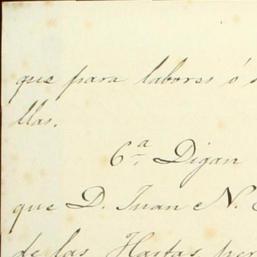 que para labores ó
llas.
6.ª Digan
que D. Juan N.
de las Hastas per